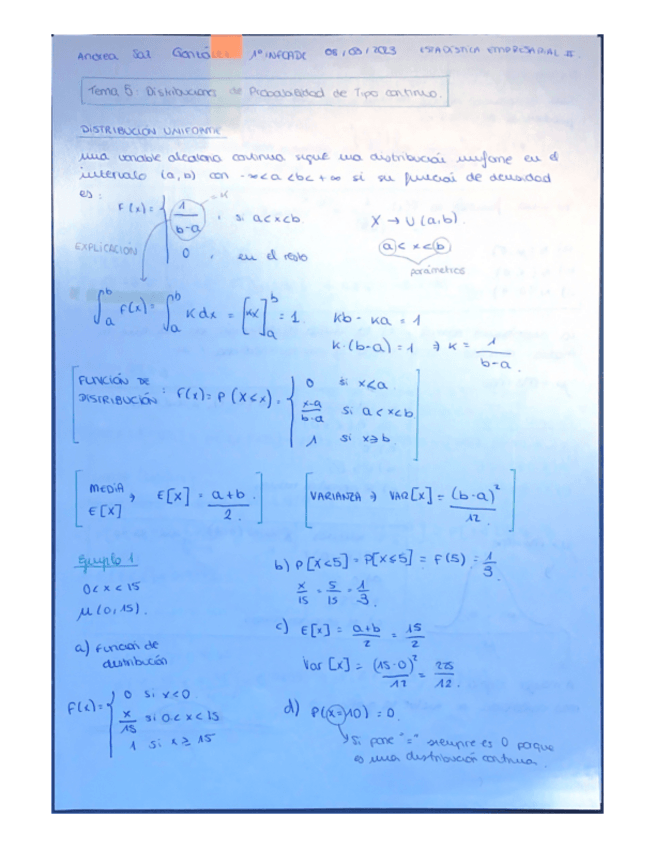 Andrea Saz González 1º INFOADE 08/03/2023 ESTADÍSTICA EMPRESARIAL II.
Tema 5: Distribuciones de Probabilidad de Tipo continuo.
DISTRIBUCIÓN UNIFORME
una variable aleatoria continua sigue una distribución uniforme en el
intervalo (a,b) con -∞<a<b<+∞ si su función de densidad
es:
f(x)= { 1/(b-a) , si a<x<b. → K
0 , en el resto
X → U(a,b).
a < x < b
parámetros
EXPLICACIÓN
∫_a^b f(x) = ∫_a^b K dx = [Kx]_a^b = 1. Kb - Ka = 1
K·(b-a) = 1 ⇒ K = 1/(b-a).
FUNCIÓN DE DISTRIBUCIÓN: F(x) = P(X<x) = { 0 si x<a.
(x-a)/(b-a) si a<x<b.
1 si x≥b.
MEDIA, E[X] E[X] = (a+b)/2.
VARIANZA → VAR[X] = (b-a)²/12.
Ejemplo 1
0<x<15
μ(0,15).
a) Función de distribución
F(x)= { 0 si x<0
x/15 si 0<x<15
1 si x≥15
b) P[X<5] = P[X≤5] = F(5) = 1/3
x/15 = 5/15 = 1/3.
c) E[x] = (a+b)/2 = 15/2
Var[x] = (15-0)²/12 = 225/12.
d) P(x=10) = 0.
Si pone "=" siempre es 0 porque
es una distribución continua.